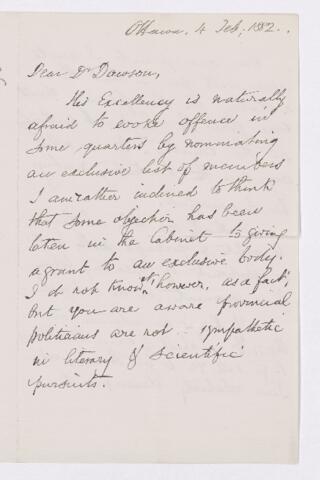 Ottawa. 4 Feb, 1882.
Dear Dr Dawson,
His Excellency is naturally
afraid to evoke offence in
some quarters by nominating
an exclusive list of members
I am rather inclined to think
that some objection has been
taken in the Cabinet to giving
a grant to an exclusive body.
I do not know it, however, as a fact;
but you are aware provincial
politicians are not sympathetic
in literary & scientific
pursuits.